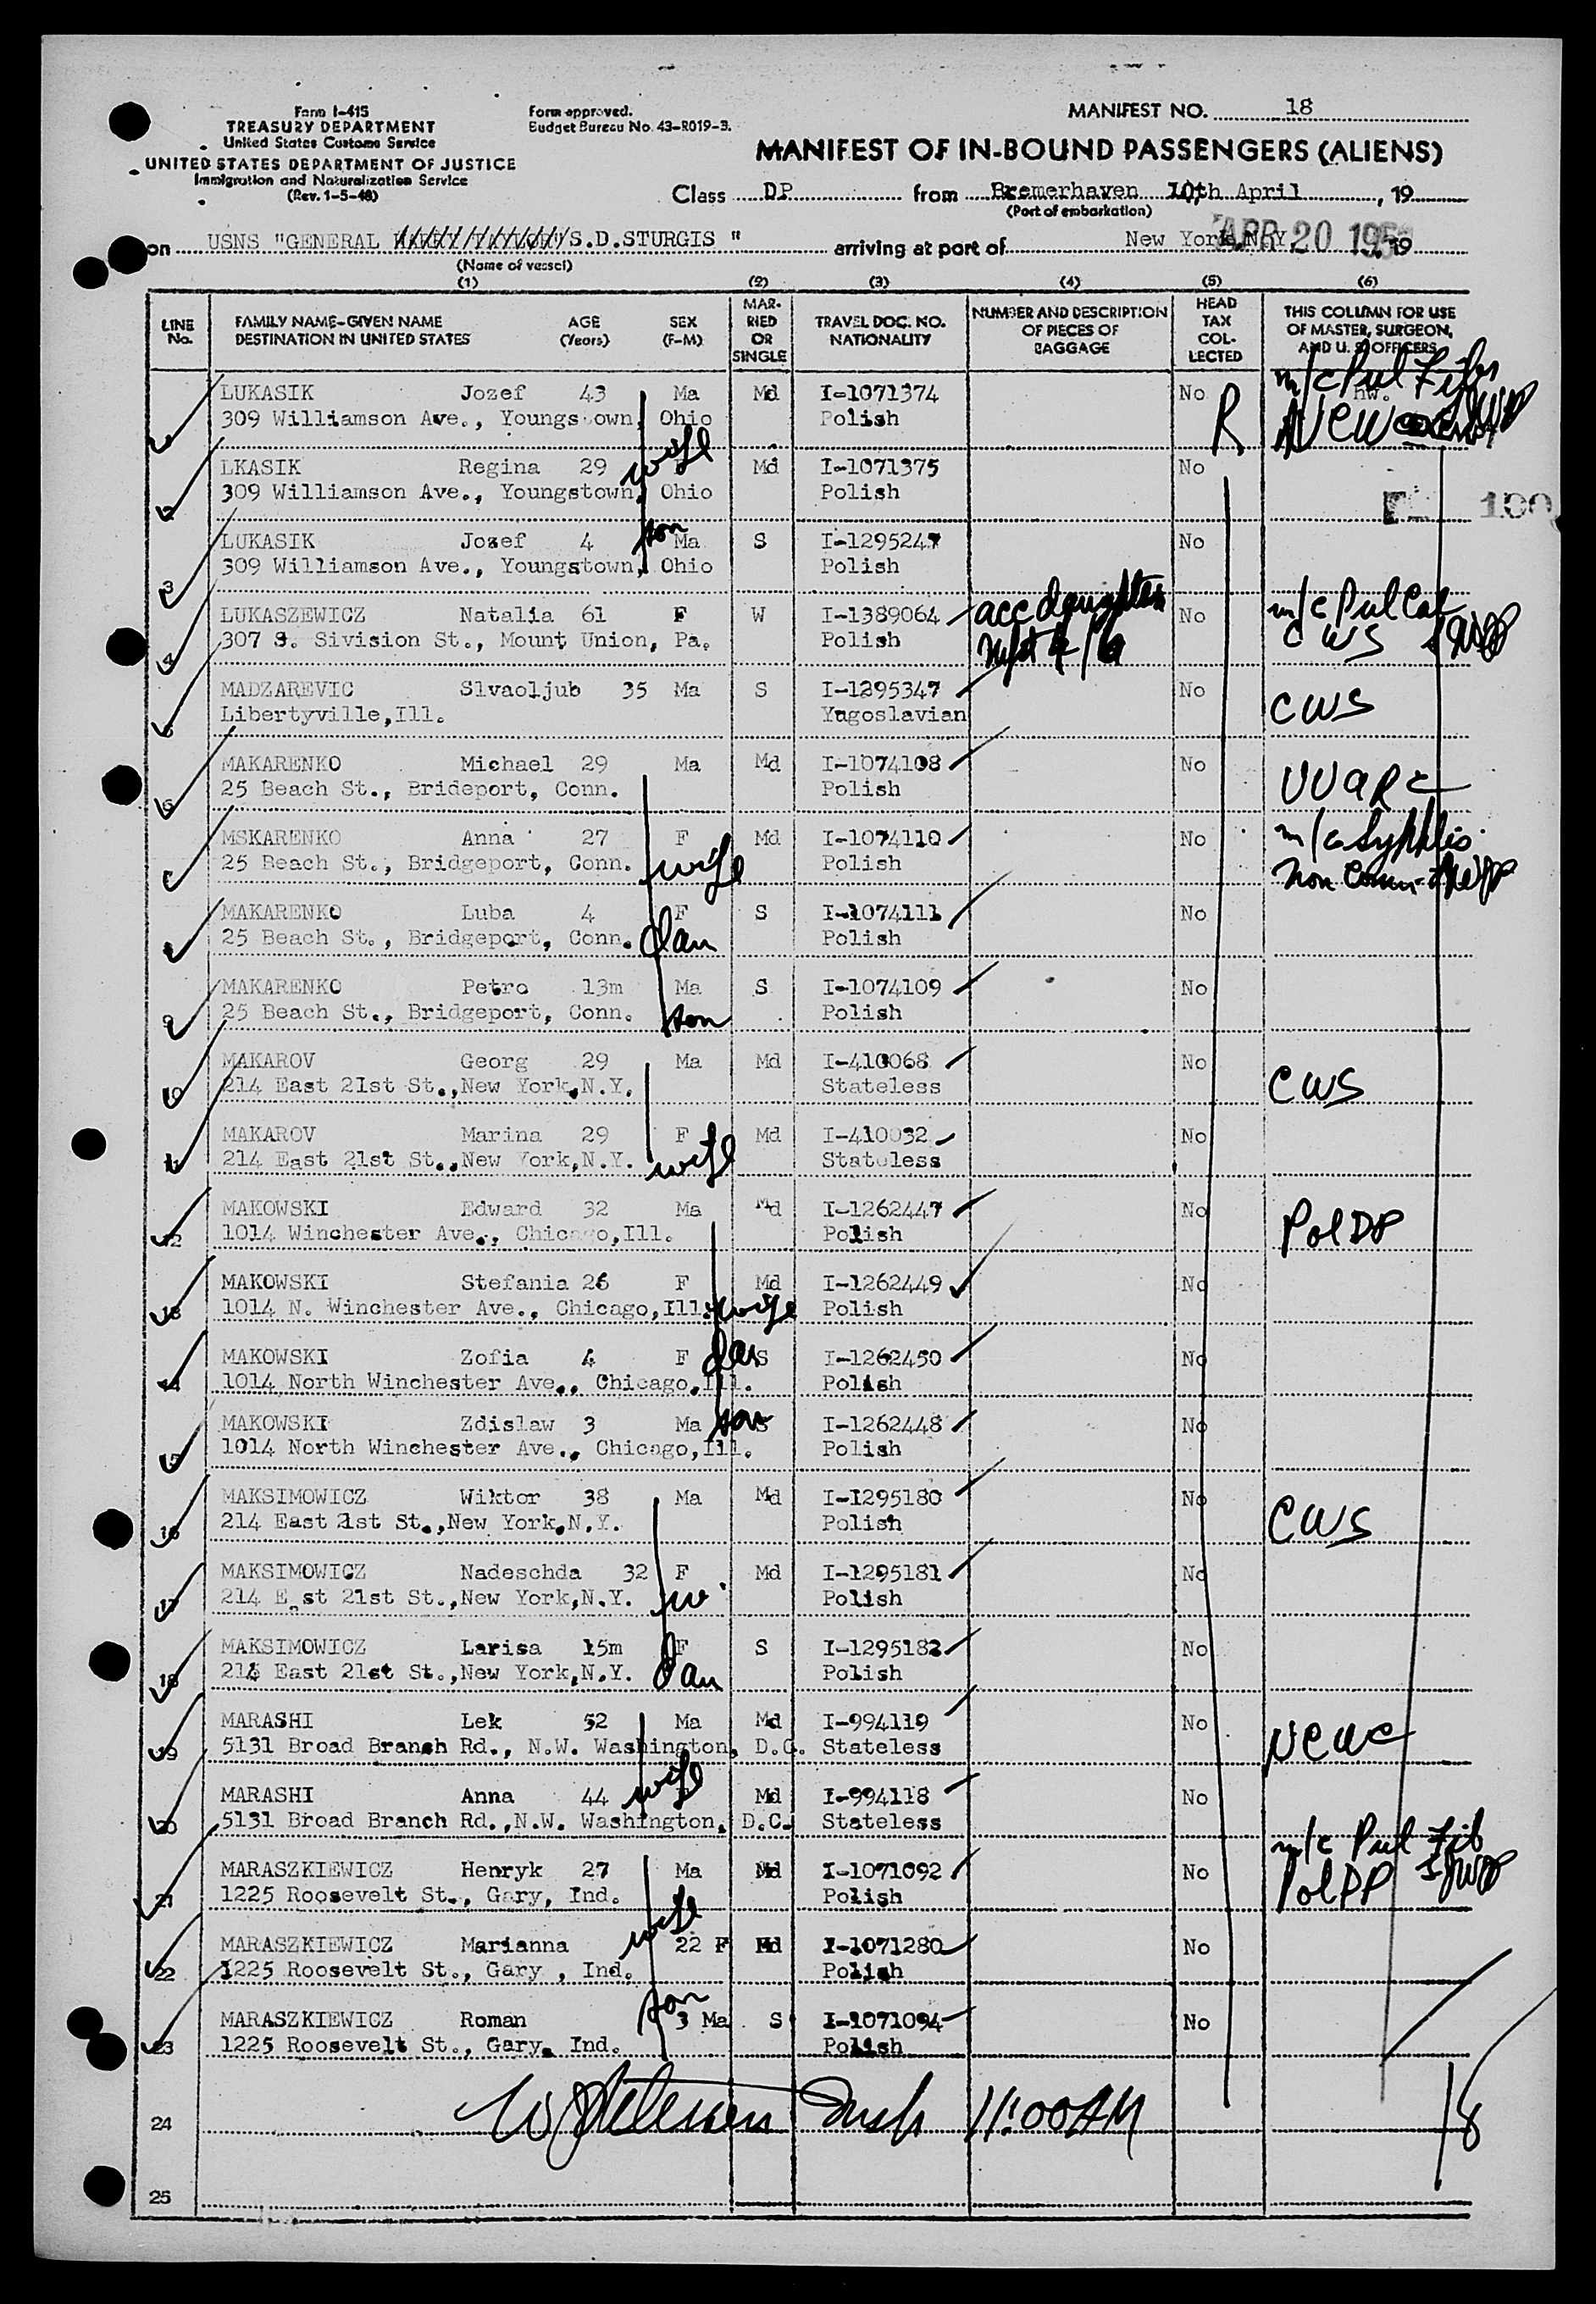 Form I-415
TREASURY DEPARTMENT
United States Customs Service
UNITED STATES DEPARTMENT OF JUSTICE
Immigration and Naturalization Service
(Rev. 1-5-48)
Form approved.
Budget Bureau No. 43-R019-3.
MANIFEST NO. 18
MANIFEST OF IN-BOUND PASSENGERS (ALIENS)
Class DP from Bremerhaven 10th April, 19
(Port of embarkation)
on USNS "GENERAL S.D.STURGIS " arriving at port of New York,N.Y. 19
APR 20 195
(Name of vessel)
(1) (2) (3) (4) (5) (6)
LINE No.
FAMILY NAME-GIVEN NAME AGE SEX
DESTINATION IN UNITED STATES (Years) (F-M)
MARRIED OR SINGLE
TRAVEL DOC. NO. NATIONALITY
NUMBER AND DESCRIPTION OF PIECES OF BAGGAGE
HEAD TAX COLLECTED
THIS COLUMN FOR USE OF MASTER, SURGEON, AND U. S. OFFICERS
LUKASIK Jozef 43 Ma Md I-1071374 No R m/c Pul Fibr
309 Williamson Ave., Youngstown, Ohio Polish
2 LKASIK Regina 29 wife Md I-1071375 No
309 Williamson Ave., Youngstown, Ohio Polish
3 LUKASIK Jozef 4 son Ma S I-1295247 No
309 Williamson Ave., Youngstown, Ohio Polish
4 LUKASZEWICZ Natalia 61 F W I-1389064 acc daughter No m/c Pul Cal
307 S. Sivision St., Mount Union, Pa. Polish CWS
MADZAREVIC Slvaoljub 35 Ma S I-1295347 No CWS
Libertyville,Ill. Yugoslavian
MAKARENKO Michael 29 Ma Md I-1074108 No UUARC
25 Beach St., Brideport, Conn. Polish
MSKARENKO Anna 27 F Md I-1074110 No m/c Syphilis
25 Beach St., Bridgeport, Conn. wife Polish Non Comm
MAKARENKO Luba 4 F S I-1074111 No
25 Beach St., Bridgeport, Conn. dau Polish
9 MAKARENKO Petro 13m Ma S I-1074109 No
25 Beach St., Bridgeport, Conn. son Polish
10 MAKAROV Georg 29 Ma Md I-410068 No CWS
214 East 21st St.,New York,N.Y. Stateless
11 MAKAROV Marina 29 F Md I-410032 No
214 East 21st St.,New York,N.Y. wife Stateless
12 MAKOWSKI Edward 32 Ma Md I-1262447 No Pol DP
1014 Winchester Ave., Chicago,Ill. Polish
13 MAKOWSKI Stefania 26 F Md I-1262449 No
1014 N. Winchester Ave., Chicago,Ill. wife Polish
14 MAKOWSKI Zofia 4 F dau S I-1262450 No
1014 North Winchester Ave., Chicago,Ill. Polish
15 MAKOWSKI Zdislaw 3 Ma son S I-1262448 No
1014 North Winchester Ave., Chicago,Ill. Polish
16 MAKSIMOWICZ Wiktor 38 Ma Md I-1295180 No CWS
214 East 21st St.,New York,N.Y. Polish
17 MAKSIMOWICZ Nadeschda 32 F Md I-1295181 No
214 East 21st St.,New York,N.Y. w Polish
18 MAKSIMOWICZ Larisa 15m F S I-1295182 No
214 East 21st St.,New York,N.Y. dau Polish
19 MARASHI Lek 52 Ma Md I-994119 No NCWC
5131 Broad Branch Rd., N.W. Washington, D.C. Stateless
20 MARASHI Anna 44 wife Md I-994118 No
5131 Broad Branch Rd.,N.W. Washington, D.C. Stateless
21 MARASZKIEWICZ Henryk 27 Ma Md I-1071092 No m/c Pul Fib
1225 Roosevelt St., Gary, Ind. Polish Pol DP
22 MARASZKIEWICZ Marianna wife 22 F Md I-1071280 No
1225 Roosevelt St., Gary , Ind. Polish
23 MARASZKIEWICZ Roman son 3 Ma S I-1071094 No
1225 Roosevelt St., Gary, Ind. Polish
24 Insp 11:00AM 18
25